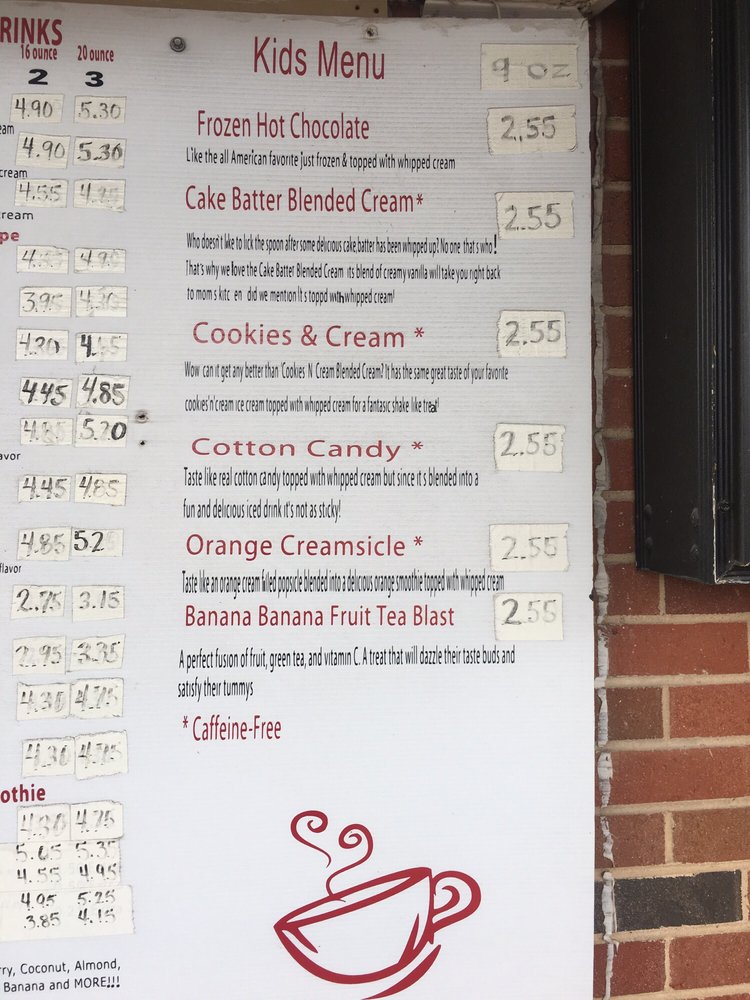 RINKS
16 ounce 20 ounce
2 3
4.90 5.30
eam
4.90 5.30
cream
4.55
cream
pe
3.95
4.20
4.45 4.85
5.20
avor
4.45 4.85
4.85 5.2
flavor
2.75 3.15
2.95 3.35
4.30 4.75
4.30 4.75
othie
4.30 4.75
5.05 5.35
4.55 4.95
4.95 5.25
3.85 4.15
rry, Coconut, Almond,
Banana and MORE!!!
Kids Menu 9 oz
Frozen Hot Chocolate 2.55
Like the all American favorite just frozen & topped with whipped cream
Cake Batter Blended Cream* 2.55
Who doesn't like to lick the spoon after some delicious cake batter has been whipped up? No one that's who!
That's why we love the Cake Batter Blended Cream its blend of creamy vanilla will take you right back
to mom s kitc en did we mention It s toppd with whipped cream!
Cookies & Cream * 2.55
Wow can it get any better than 'Cookies 'N' Cream Blended Cream? It has the same great taste of your favorite
cookies'n'cream ice cream topped with whipped cream for a fantasic shake like treat!
Cotton Candy * 2.55
Taste like real cotton candy topped with whipped cream but since it s blended into a
fun and delicious iced drink it's not as sticky!
Orange Creamsicle * 2.55
Taste like an orange cream filled popsicle blended into a delicious orange smoothie topped with whipped cream
Banana Banana Fruit Tea Blast 2.55
A perfect fusion of fruit, green tea, and vitamin C. A treat that will dazzle their taste buds and
satisfy their tummys
* Caffeine-Free